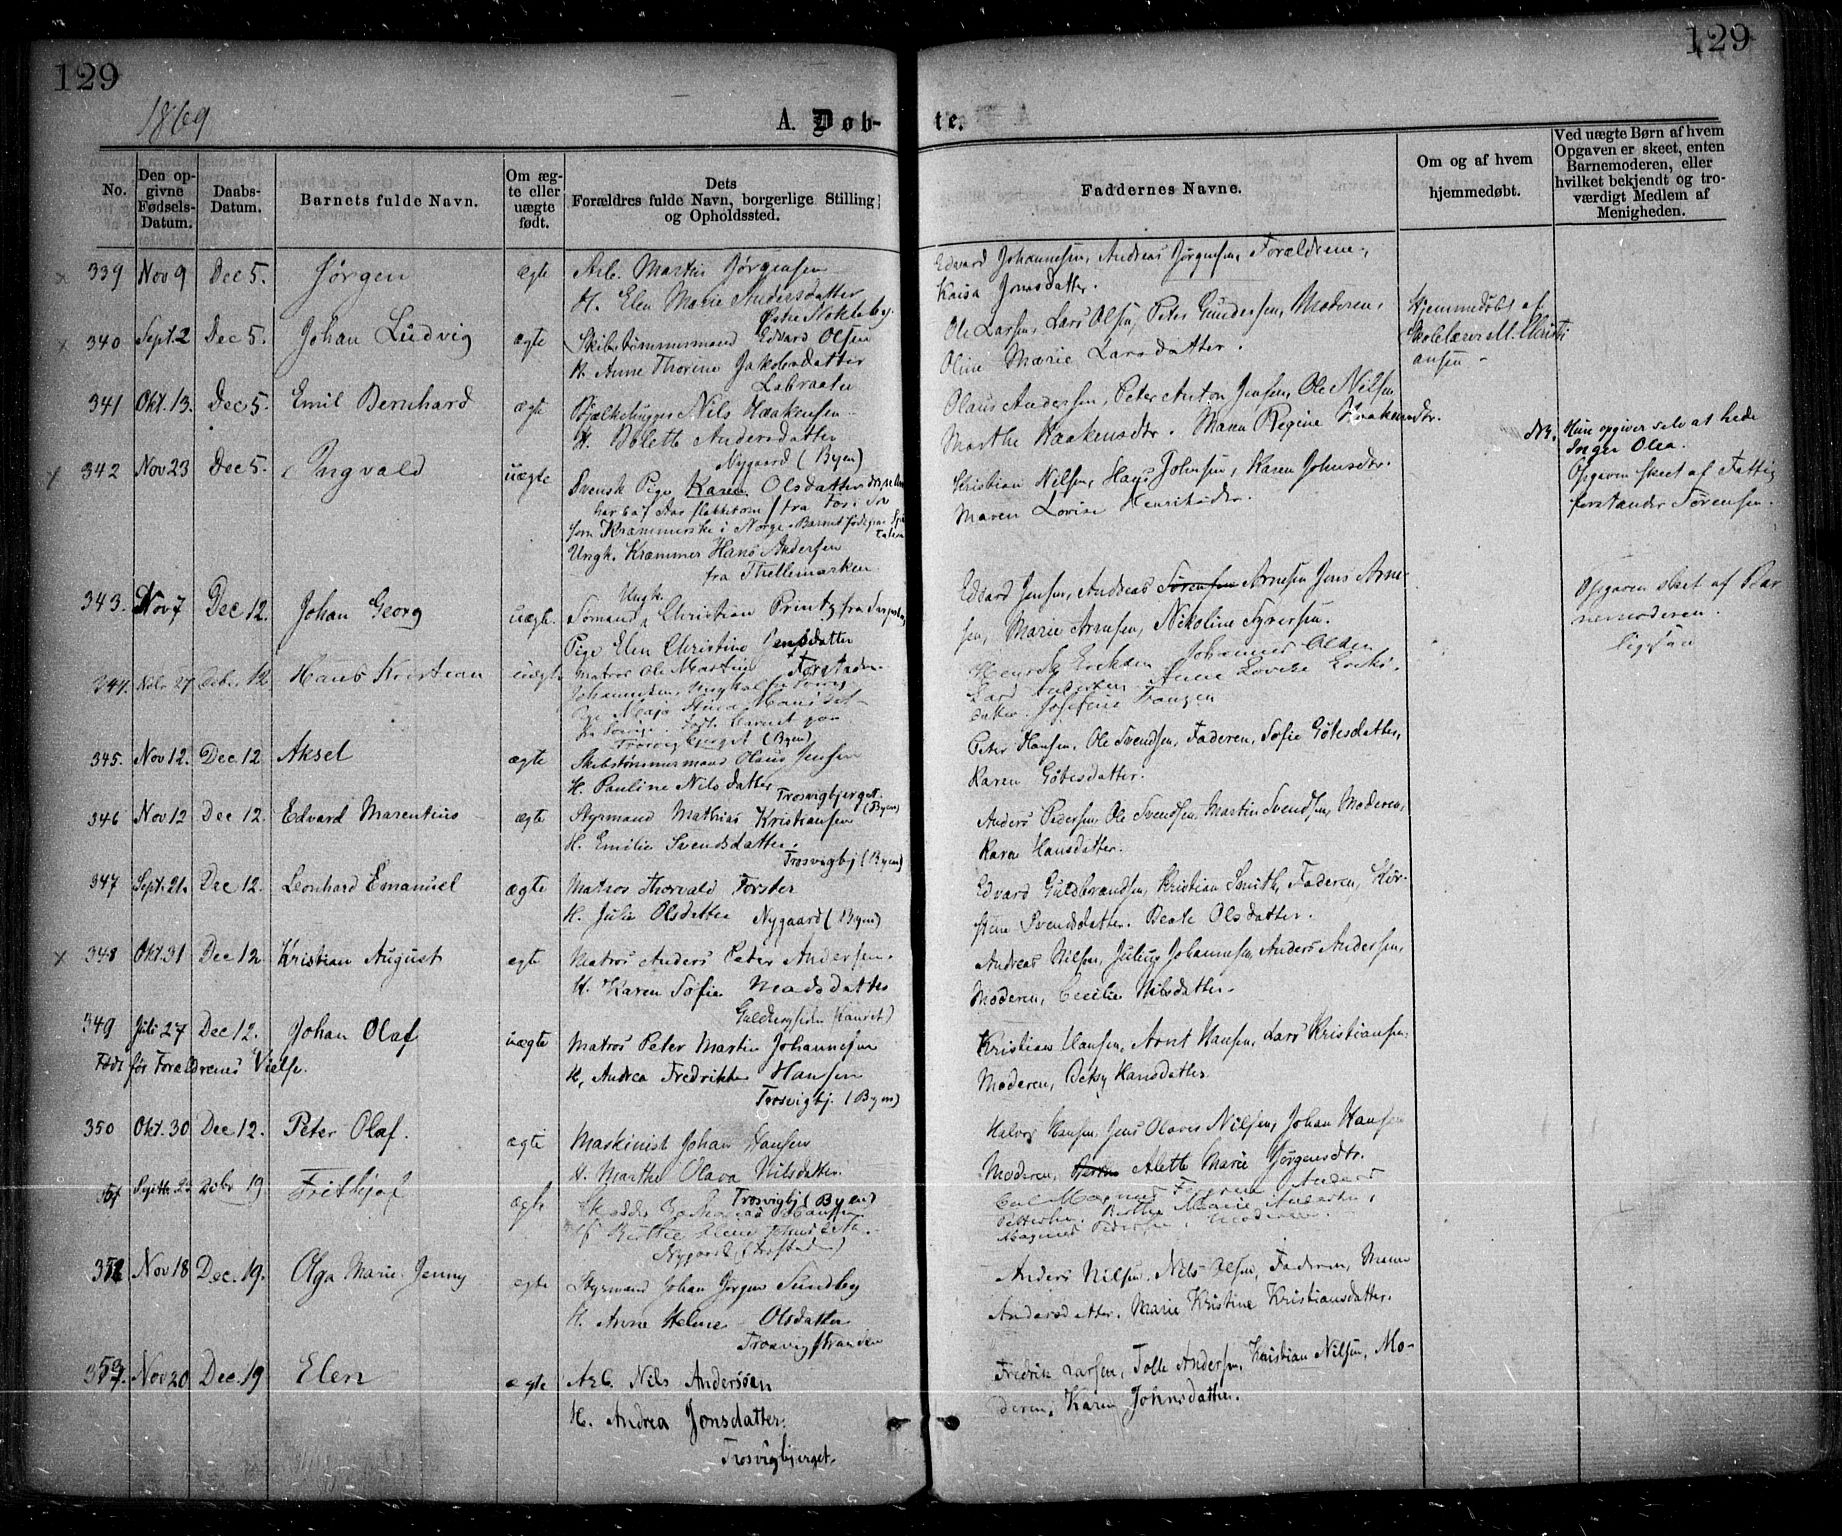 129
129
1869
A. Døb-
te.
No.
Den op-
givne
Fødsels-
Datum.
Daabs-
Datum.
Barnets fulde Navn.
Om æg-
te eller
uægte
født.
Dets
Forældres fulde Navn, borgerlige Stilling
og Opholdssted.
Faddernes Navne.
Om og af hvem
hjemmedøbt.
Ved uægte Børn af hvem
Opgaven er skeet, enten
Barnemoderen, eller
hvilket bekjendt og tro-
værdigt Medlem af
Menigheden.
339 Nov 9 Dec 5. Jørgen ægte Arb. Martin Jørgensen
H. Elen Marie Andersdatter
Østre Stokkeby.
Edvard Johannesen, Andreas Jørgensen, Forældrene,
Kaisa Jonasdatter.
340 Sept. 2 Dec 5. Johan Ludvig ægte Skibstømmermand Edvard Olsen
H. Anne Thorene Jakobsdatter
Labraaten
Ole Larsen, Lars Olsen, Peter Gundersen, Moderen,
Oline Marie Larsdatter.
Hjemmedøbt af
Skolelærer M. Christi
ansen
341 Okt. 13. Dec 5. Emil Bernhard ægte Bjælkehugger Nils Haakensen
H. Bolette Andersdatter
Nygaard (Byen)
Olaus Andersen, Peter Anton Jensen, Ole Nilsen,
Marthe Haakensdtr. Maren Regine Haakensdtr.
342 Nov 23 Dec 5. Ingvald uægte Svensk Pige Karen Olsdatter
fra
som Kræmmerske i Norge. Barnet født paa
Ungk. Kræmmer Hans Andersen
fra Thellemarken
Kristian Nilsen, Hans Johnsen, Karen Johnsdtr.
Maren Lovise Henriksdtr.
NB. Hun opgiver selv at hede
Inger Olea.
Opgaven skeet af Fattig
forstander Sørensen.
343. Nov 7 Dec 12. Johan Georg uægte. Ungk.
Sømand Christian Printz fra
Pige Elen Christine Jensdatter
Forstaden
Edvard Jensen, Andreas Sørensen Arnesen Jens Arne-
sen, Marie Arnesen, Nikoline Syversen.
Opgaven skeet af Bar
nemoderen.
344. 27 12. Hans Kristian uægte Matros Ole Martin
Johannesen, Ungkarl
Pige Maja Stina Hansdat-
fra Sverige. Født Barnet paa
Trosvigbjerget (Byen)
Henrik Eriksen Johannes Olsen
Anne Lovise Eriks-
datter. Josefine Frantzen
Ligesaa
345. Nov 12. Dec 12 Aksel ægte Skibstømmermand Olaus Jensen
H. Pauline Nilsdatter
Trosvigbjerget. (Byen)
Peter Hansen, Ole Svendsen, Faderen, Sofie Gøtesdatter,
Karen Gøtesdatter.
346 Nov 12 Dec 12. Edvard Marentius ægte Styrmand Mathias Kristiansen
H. Emilie Svendsdatter.
Trosvigbj (Byen)
Anders Pedersen, Ole Svendsen, Martin Svendsen, Moderen,
Karen Hansdatter.
347 Sept. 21. Dec 12. Leonhard Emanuel ægte Matros Thorvald Forster
H. Julie Olsdatter Nygaard (Byen)
Edvard Guldbrandsen, Kristian Smith, Faderen, Kir-
stine Svendsdatter. Beate Olsdatter.
348 Okt. 31 Dec 12. Kristian August ægte Matros Anders Peter Andersen.
H. Karen Sofie Madsdatter
Andreas Nilsen, Julius Johannesen, Anders Andersen,
Moderen, Cecilie Nilsdatter.
349 Juli 27 Dec 12. Johan Olaf uægte Matros Peter Martin Johannesen
Født før Forældrenes Vielse.
H. Andrea Fredrikke Hansen
Trosvigbj. (Byen)
Kristian Hansen, Arnt Hansen, Lars Kristiansen,
Moderen, Betsy Hansdatter.
350 Okt. 30 Dec 12. Peter Olaf. ægte Maskinist Johan Hansen
H. Marthe Olava Nilsdatter.
Trosvigbj (Byen)
Halvor Hansen, Jens Olaves Nilsen, Johan Hansen
Moderen, Alette Marie Jørgensdtr.
351 19 Frithjof ægte
Nygaard (Forstaden)
Carl Magnus Andreas
Pettersen. Berthe Marie Andersen,
Magnus Pedersen, Moderen.
352 Nov 18 Dec. 19. Olga Marie Jenny ægte Styrmand Johan Jørgen Sundby
H. Anne Helene Olsdatter
Trosvigstranden
Anders Nilsen. Nils Olsen, Faderen, Maren
Andersdatter. Marie Kristine Kristiansdatter.
353. Nov 20 Dec. 19 Elen ægte Arb. Nils Anderssen
H. Andrea Jonsdatter.
Trosvigbjerget.
Fredrik Larsen, Tolle Andersen, Kristian Nilsen, Mo-
deren, Karen Johnsdatter.